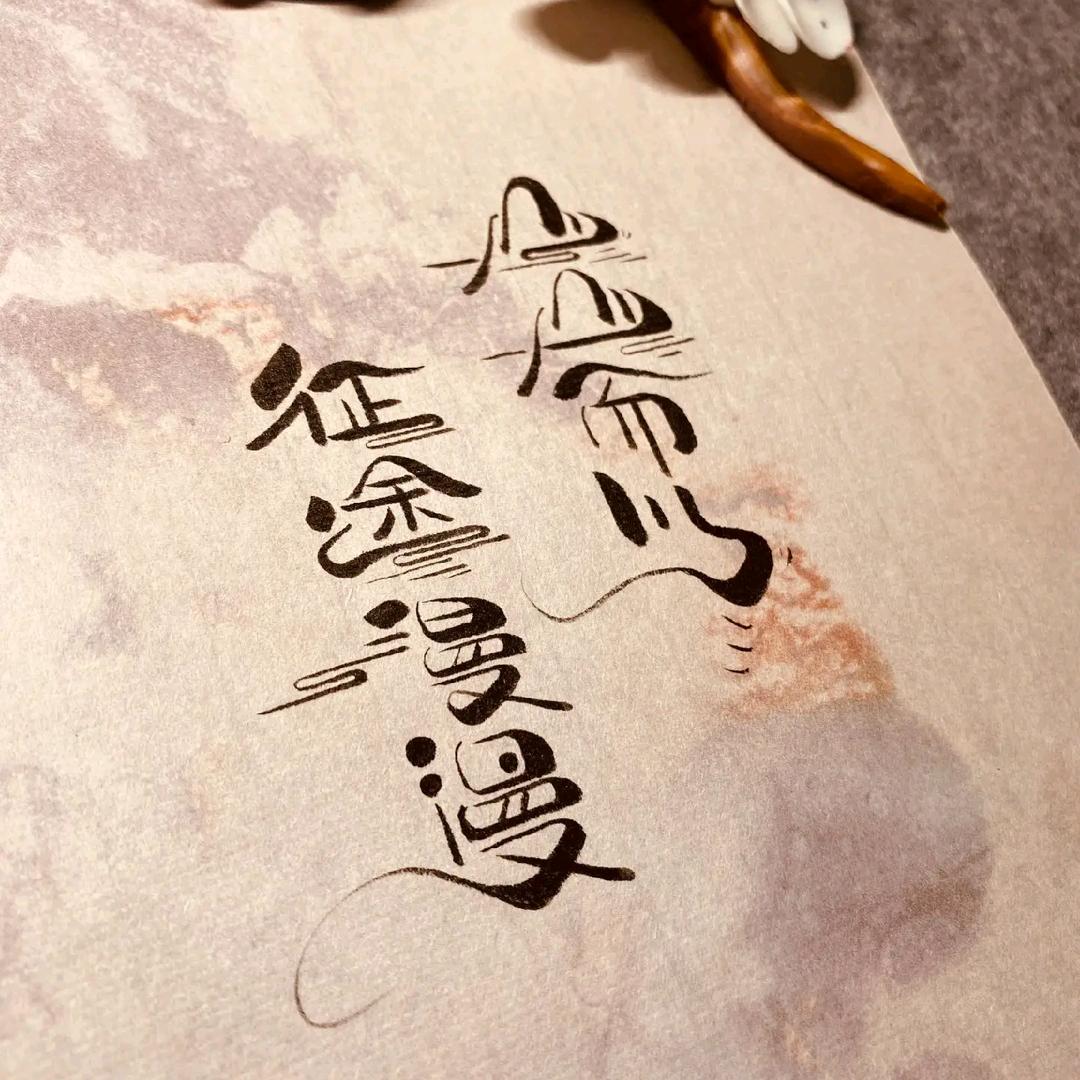 山山而川
征途漫漫